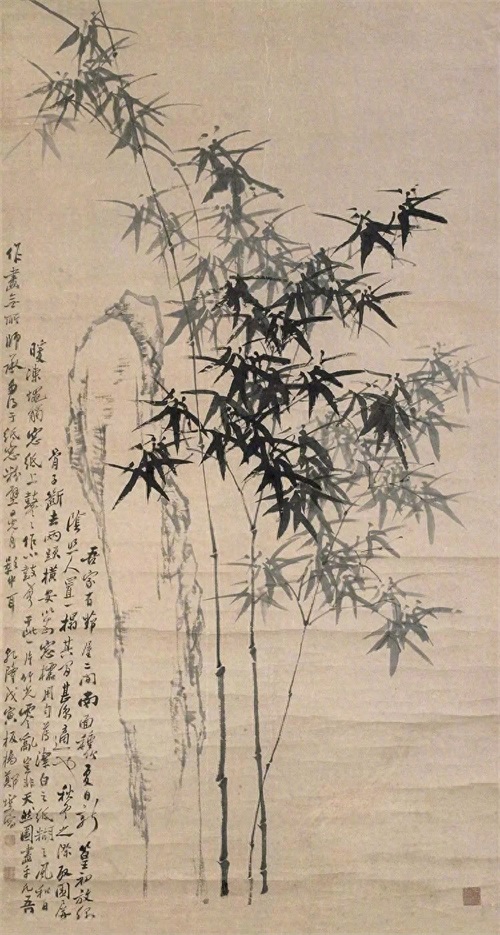 吾家有茅屋二間南面種竹夏日新篁初放綠
陰照人置一榻其間甚涼適也秋冬之際取圍屏
骨子斷去兩頭橫安以為窓櫺用勻薄潔白之紙糊之風和日
暖凍蠅觸窓紙上鼕々作小鼓聲于此一片竹光零亂豈非天然圖畫乎凡吾
作畫無所師承多得于紙窓粉壁日光月影中耳 乾隆戊寅板橋鄭燮